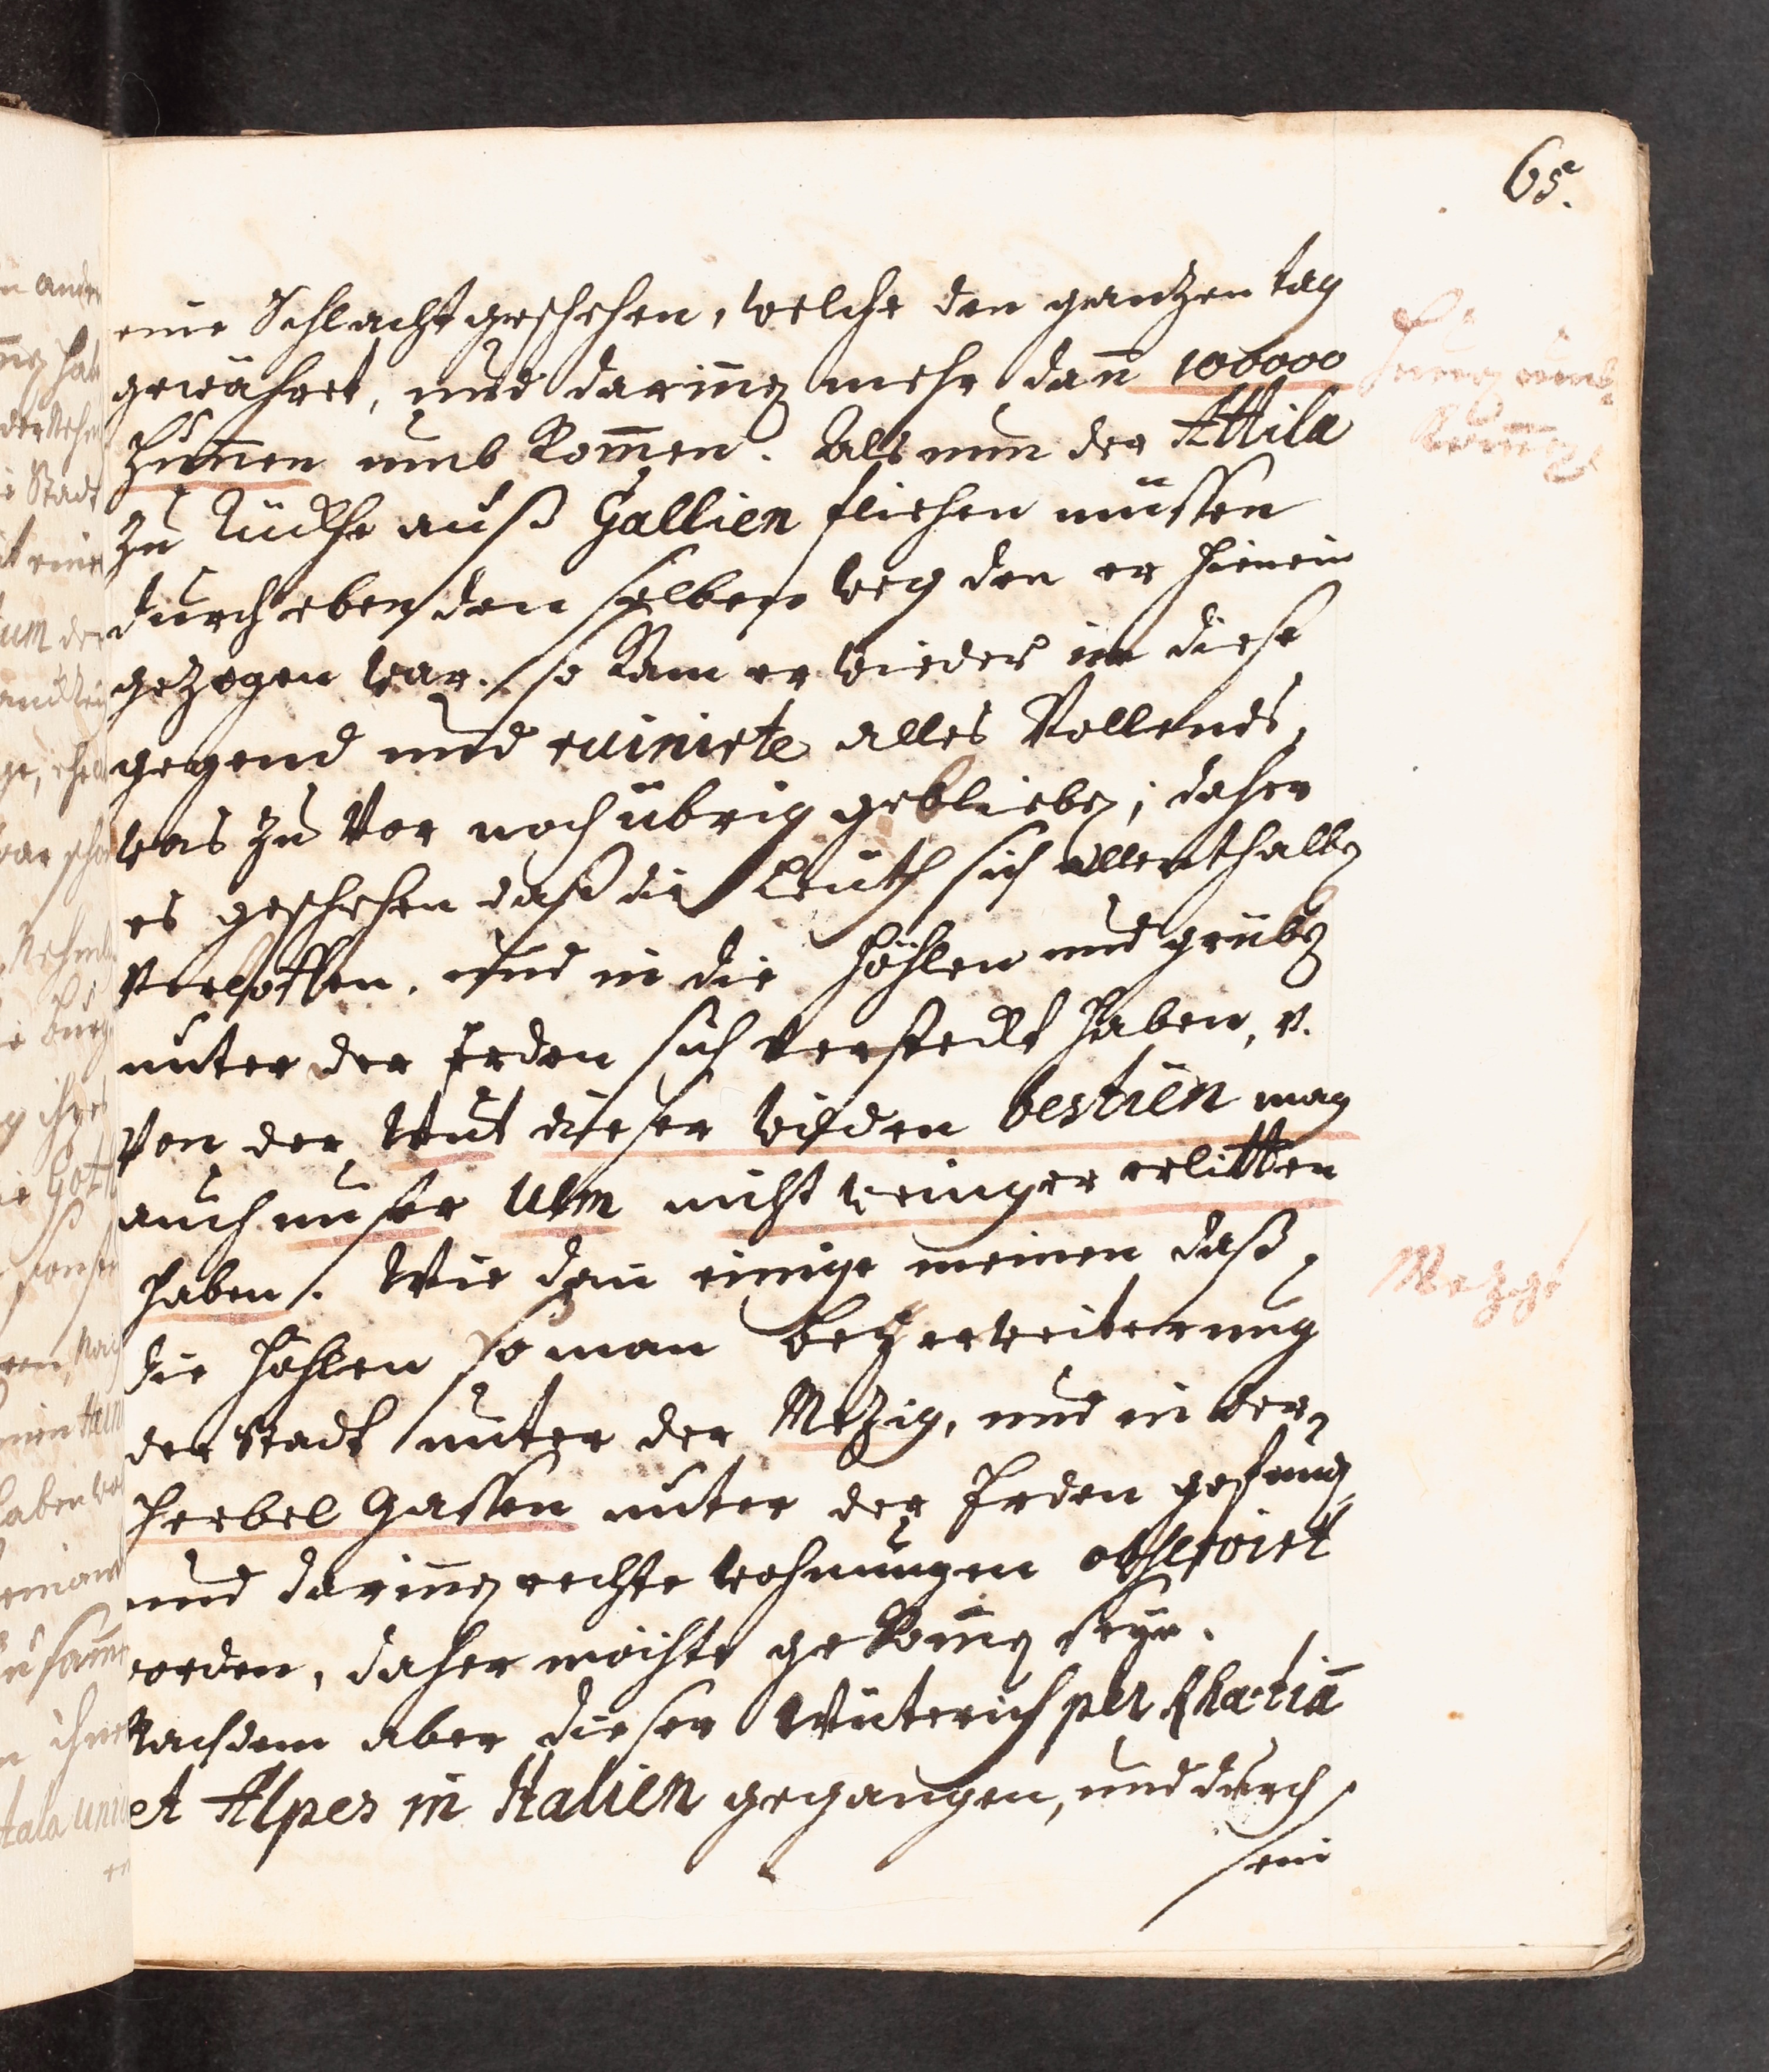 65.
eine Schlacht geschehen, welche den gantzen tag
gewähret, und darinnen mehr dañ 100000
Hunnen umb kom̄en. Als nun der Attila
zu rückhe auß Gallien fliehen müssen
durch eben den selben weg den er hinein
gezogen war. so kam er wieder in diese
gegend und ruinirte alles Vollends,
was zu vor noch übrig geblieben; daher
es geschehen daß die Leuth sich allenthalben
verloffen. und in die Höhlen und gruben
unter der Erden sich versteckt haben, v.
Von der Wut dieser wilden bestien mag
auch unser Ulm nicht weniger erlitten
haben. Wie dan einige meinen daß,
die Höhlen so man bey erweiterung
der Stadt unter der Mezig, und in der
Herbel Gassen unter der Erden gefunden
und darinnen rechte wohnungen observirt
worden, daher möchte gekom̄en seyn.
Nachdem aber dieser Wüterich per Rhætiā
et Alpes in Italien gegangen, und durch
sein
Mezge